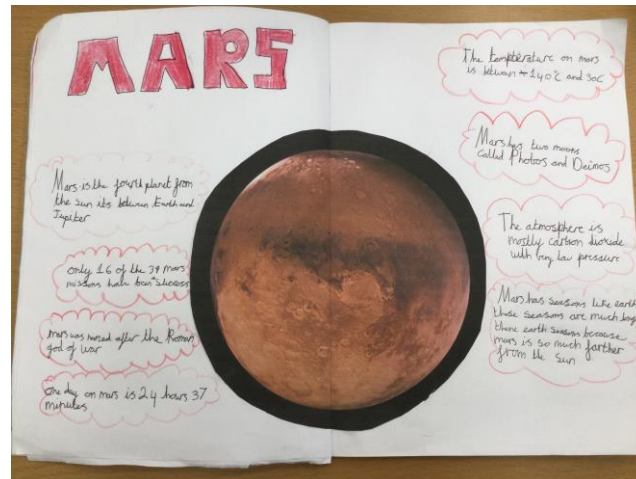 MARS
Mars is the fourth planet from
the sun its between Earth and
Jupiter
only 16 of the 39 mars
missions have been success
mars was named after the Roman
god of war
One day on mars is 24 hours 37
minutes
The temperature on mars
is between 140°C and 30C
Mars has two moons
called Phobos and Deimos
The atmosphere is
mostly carbon dioxide
with very low pressure
Mars has seasons like earth
those seasons are much
earth seasons because
mars is so much farther
from the sun